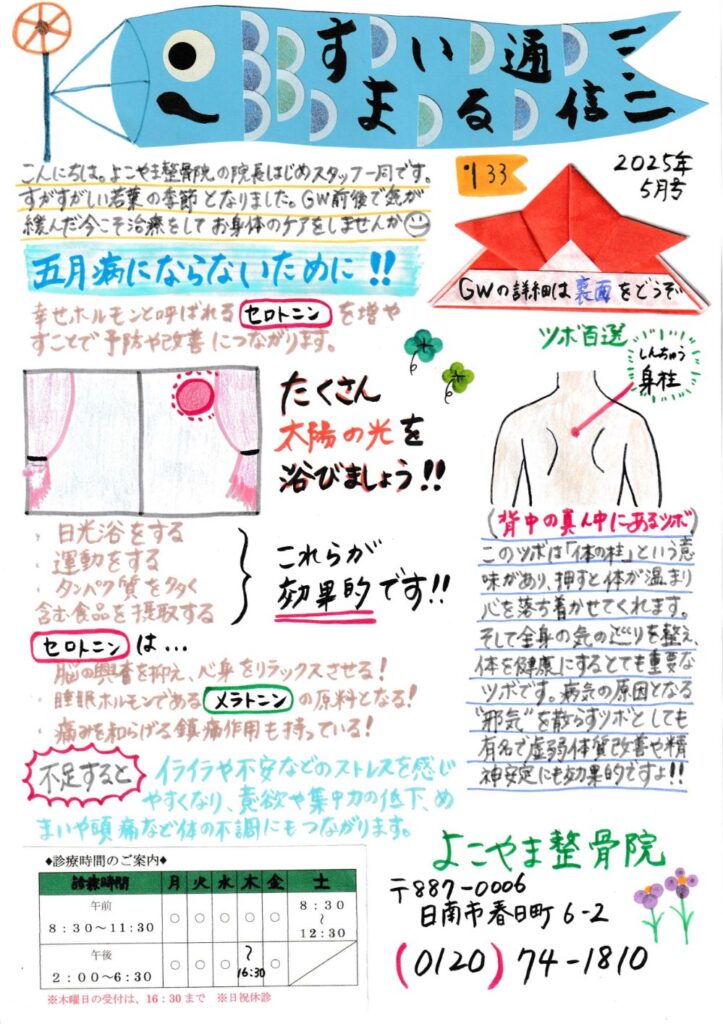 すまいる通信ミニ
こんにちは。よこやま整骨院の院長はじめスタッフ一同です。
すがすがしい若葉の季節となりました。GW前後で気が
緩んだ今こそ治療をしてお身体のケアをしませんか
133
2025年
5月号
GWの詳細は裏面をどうぞ
五月病にならないために!!
幸せホルモンと呼ばれるセロトニンを増や
すことで予防や改善につながります。
たくさん
太陽の光を
浴びましょう!!
・日光浴をする
・運動をする
・タンパク質を多く
含む食品を摂取する
これらが
効果的です!!
セロトニンは…
・脳の興奮を抑え、心身をリラックスさせる!
・睡眠ホルモンであるメラトニンの原料となる!
・痛みを和らげる鎮痛作用も持っている!
不足すると
イライラや不安などのストレスを感じ
やすくなり、意欲や集中力の低下、め
まいや頭痛など体の不調にもつながります。
ツボ百選
しんちゅう
身柱
(背中の真ん中にあるツボ)
このツボは「体の柱」という意
味があり、押すと体が温まり
心を落ち着かせてくれます。
そして全身の気の巡りを整え、
体を健康にするとても重要な
ツボです。病気の原因となる
"邪気"を散らすツボとしても
有名で虚弱体質改善や精
神安定にも効果的ですよ!!
◆診療時間のご案内◆
診療時間 月 火 水 木 金 土
午前 8:30～11:30 ○ ○ ○ ○ ○ 8:30～12:30
午後 2:00～6:30 ○ ○ ○ ～16:30 ○
※木曜日の受付は、16:30まで ※日祝休診
よこやま整骨院
〒887-0006
日南市春日町6-2
(0120)74-1810